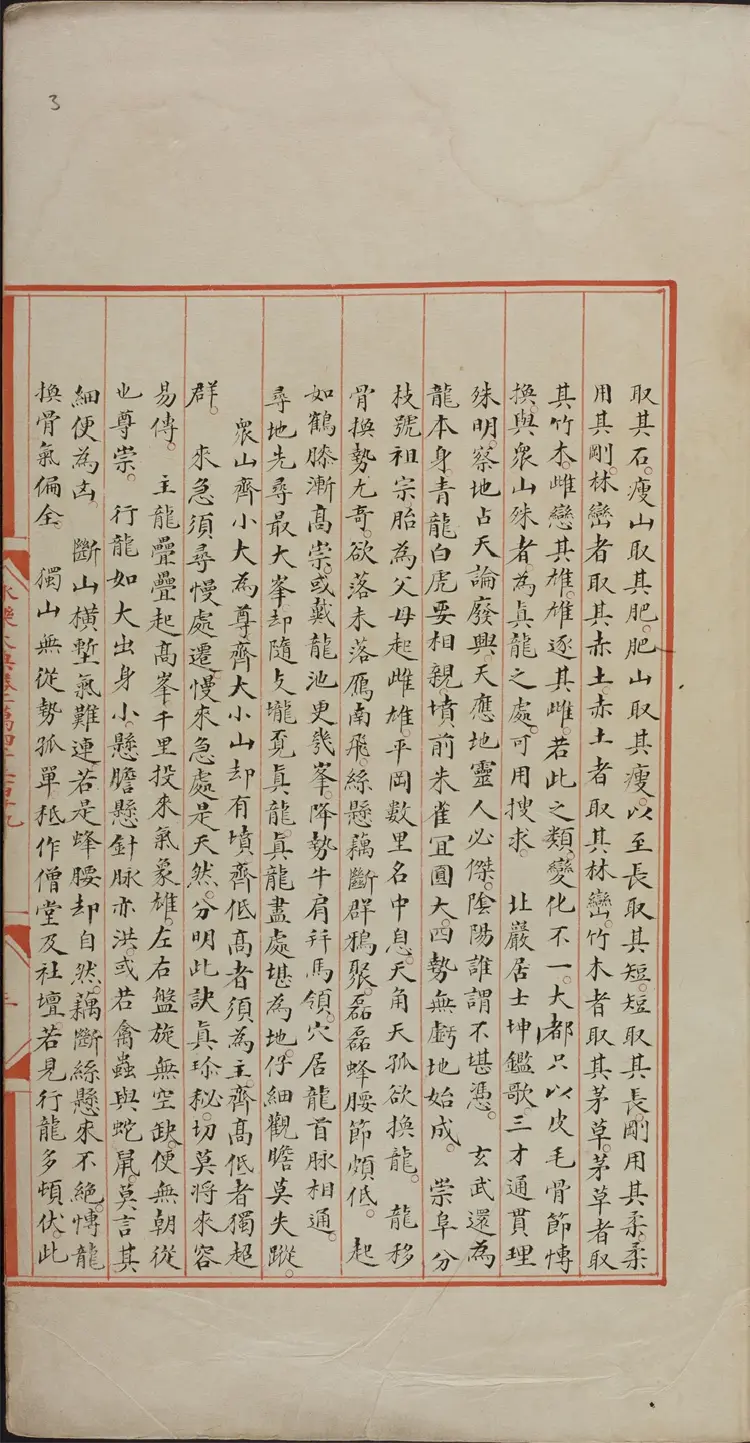 3
取其石。瘦山取其肥。肥山取其瘦。以至長取其短。短取其長。剛用其柔。柔
用其剛。林巒者取其赤土。赤土者取其林巒。竹木者取其茅草。茅草者取
其竹木。雌戀其雄。雄逐其雌。若此之類。變化不一。大都只以皮毛骨節慱
換。與衆山殊者。為真龍之處。可用搜求。 嚴居士坤鑑歌。三才通貫理
殊明。察地占天論廢興。天應地靈人必傑。陰陽誰謂不堪憑。 玄武還為
龍本身。青龍白虎要相親。墳前朱雀冝圓大。四勢無虧地始成。 崇阜分
枝號祖宗。胎為父母起雌雄。平岡數里名中息。天角天孤欲換龍。 龍移
骨換勢尤奇。欲落未落鴈南飛。絲懸藕斷群鴉聚。磊磊蜂腰節頗低。 起
如鶴膝漸髙崇。或戴龍池更幾峯。降勢牛肩幷馬領。穴居龍首脉相通。
尋地先尋最大峯。却隨支壠覔真龍。真龍盡處堪為地。仔細觀瞻莫失蹤。
衆山齊小大為尊。齊大小山却有墳。齊低髙者須為主。齊髙低者獨超
群。 來急須尋慢處遷。慢來急處是天然。分明此訣真珎秘。切莫將來容
易傳。 主龍疊疊起髙峯。千里投來氣象雄。左右盤旋無空缺。便無朝從
也尊崇。 行龍如大出身小。懸膽懸針脉亦洪。或若禽蟲與蛇鼠。莫言其
細便為凶。 斷山橫塹氣難連。若是蜂腰却自然。藕斷絲懸來不絕。慱龍
換骨氣偏全。 獨山無從勢孤單。秪作僧堂及社壇。若見行龍多頓伏。此
永樂大典卷二萬四千二百十九